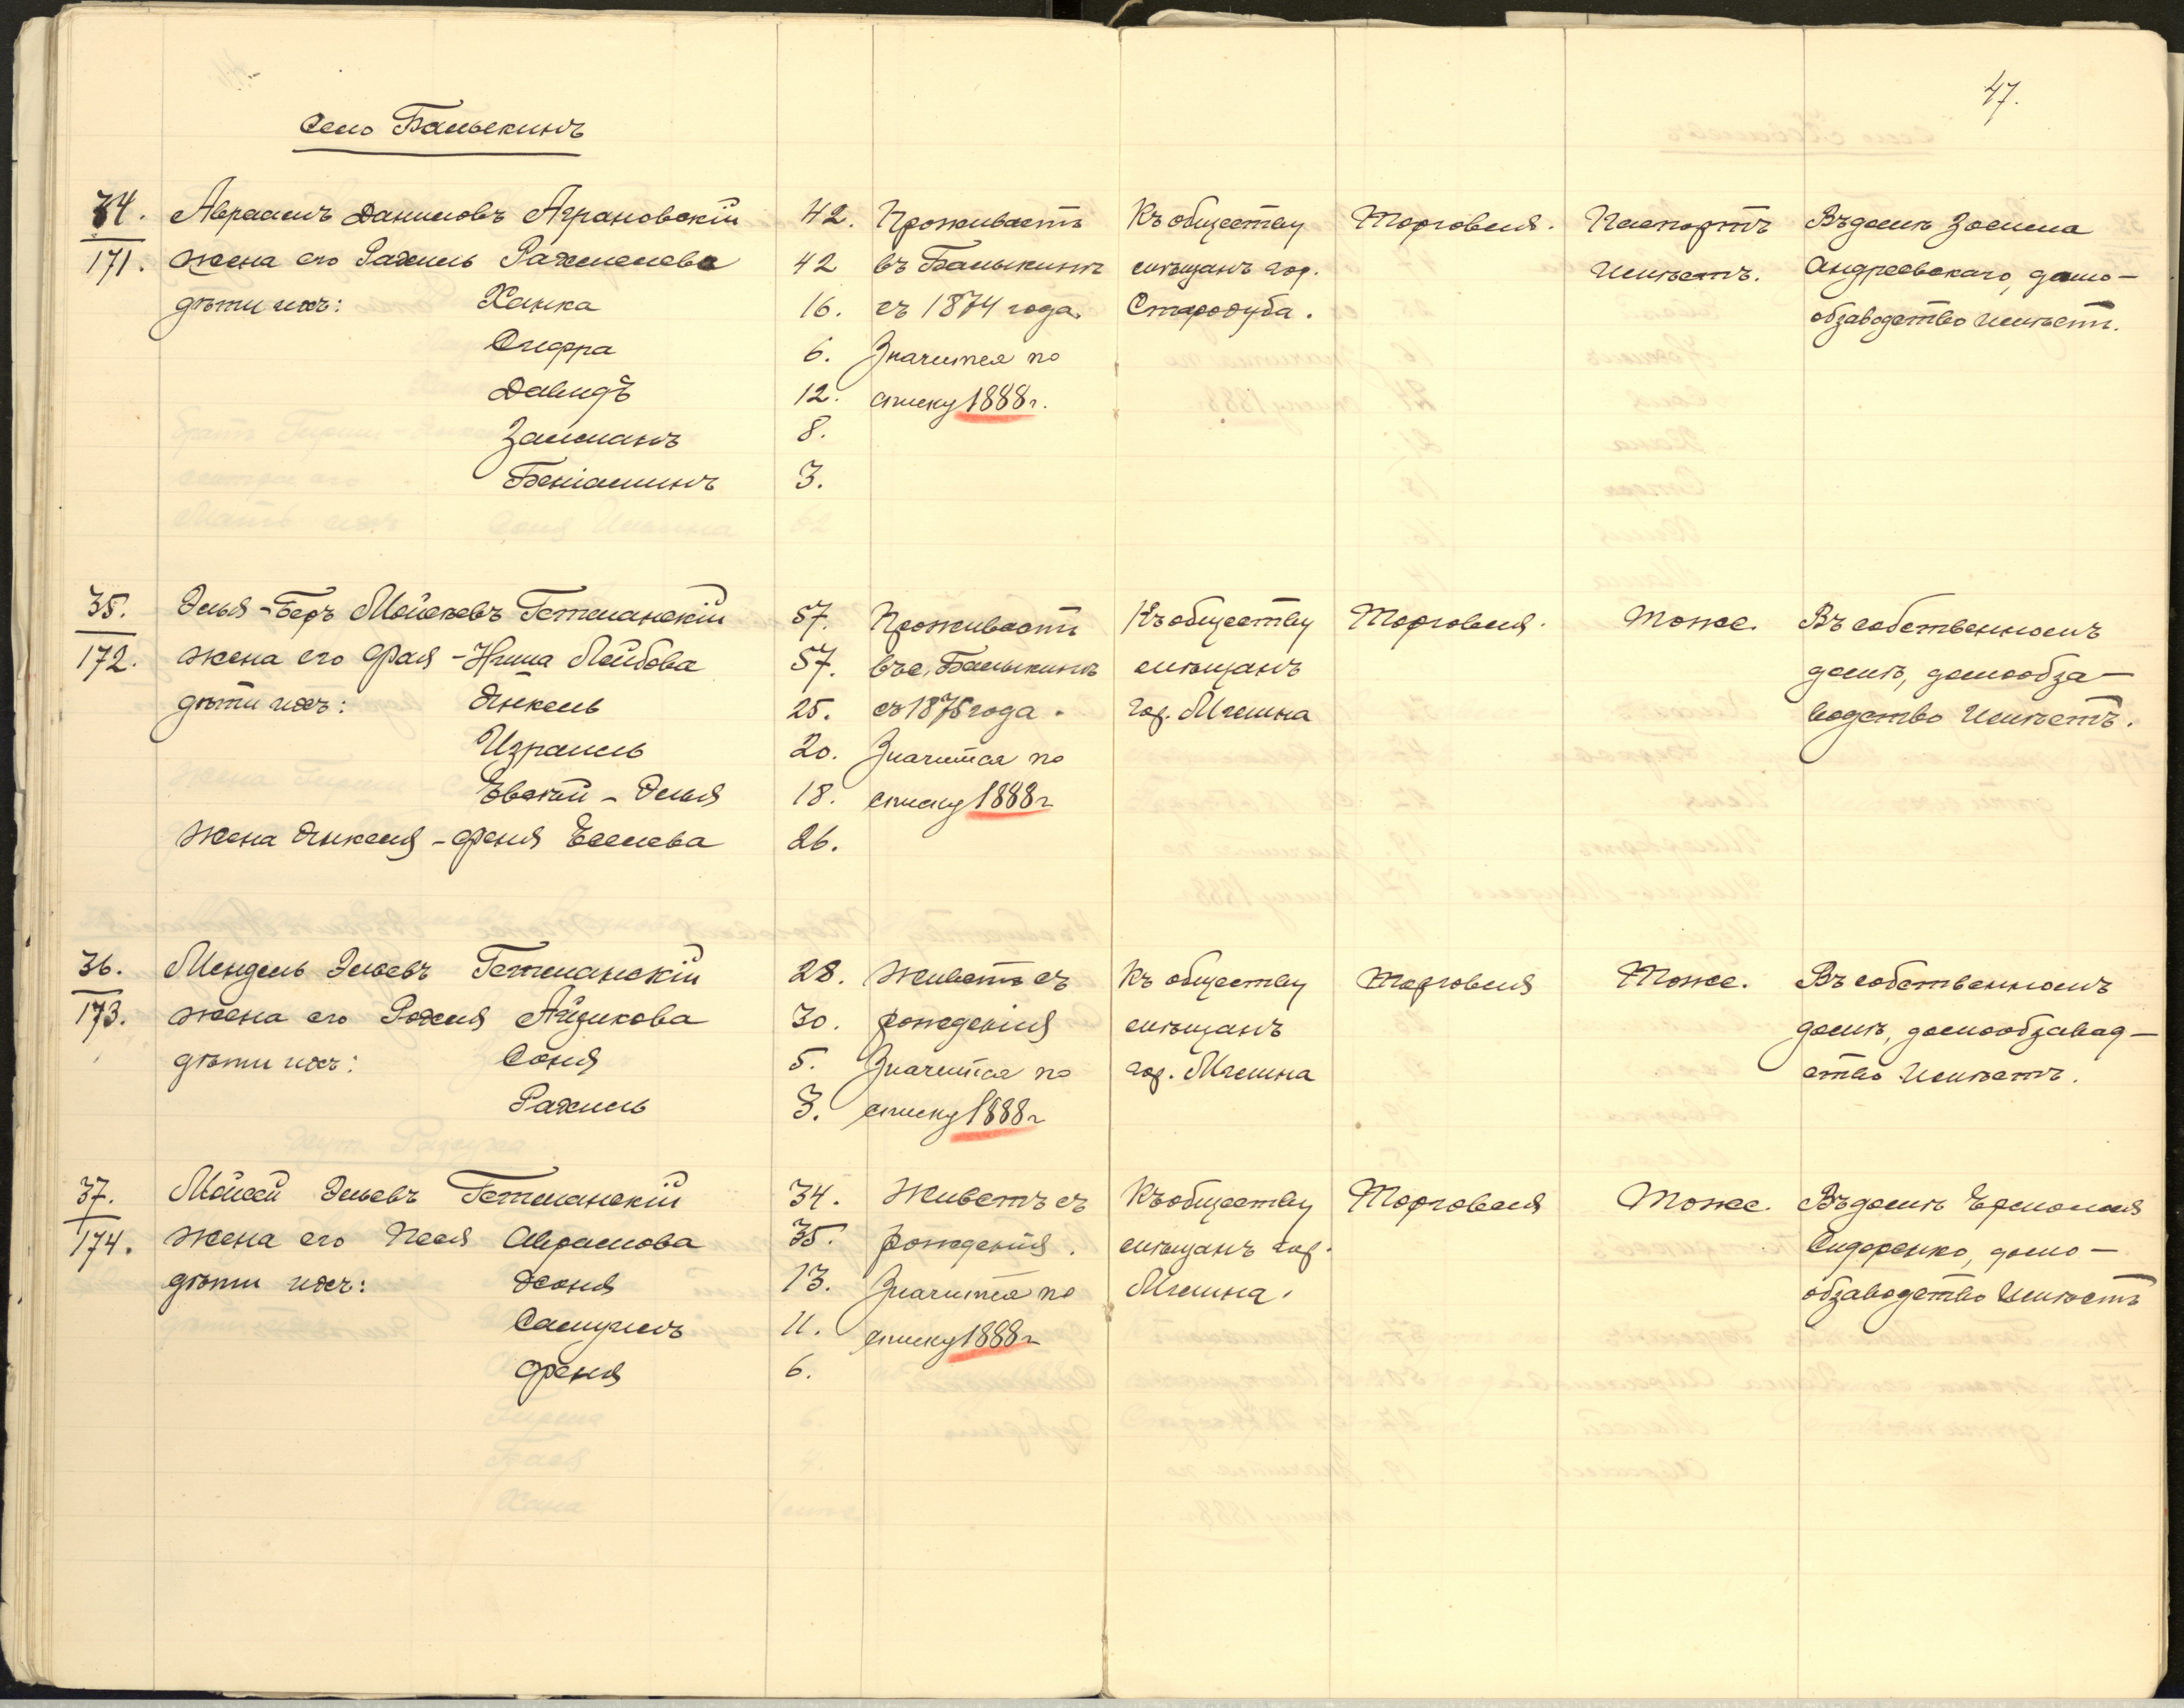 47.
Село Балыкинъ
34. Авраамъ Даниловъ Аграновскій 42. Проживаетъ Къ обществу Торговля. Паспортъ Въ домѣ Зосима
171. жена его Рахиль 42 въ Балыкинѣ мѣщанъ гор. Имѣетъ. Андреевскаго, домо-
дѣти ихъ: Ханка 16. съ 1874 года. Стародуба. обзаводство имѣетъ.
Сифра 6. Значится по
Давидъ 12. списку 1888 г.
Залманъ 8.
Беніаминъ 3.
35. Элья-Беръ Гетманскій 57. Проживаетъ Къ обществу Торговля. Тоже. Въ собственномъ
172. жена его Фая - Лейбова 57. въ с. Балыкинѣ мѣщанъ домѣ, домообза-
дѣти ихъ: Янкель 25. съ 1875 года. гор. Мглина водство имѣетъ.
Израиль 20. Значится по
Элья 18. списку 1888 г
жена Янкеля - Феня 26.
36. Мендель Эльевъ Гетманскій 28. Живетъ съ Къ обществу Торговля Тоже. Въ собственномъ
173. жена его Айзикова 30. рожденія мѣщанъ домѣ, домообзавод-
дѣти ихъ: Соня 5. Значится по гор. Мглина ство имѣетъ.
Рахиль 3. списку 1888 г
37. Мойсей Эльевъ Гетманскій 34. Живетъ съ Къ обществу Торговля Тоже. Въ домѣ Ермолая
174. жена его Песя Абрамова 35. рожденія. мѣщанъ гор. Сидоренко, домо-
дѣти ихъ: Хоня 13. Значится по Мглина. обзаводство имѣетъ
Самуилъ 11. списку 1888 г
Феня 6.